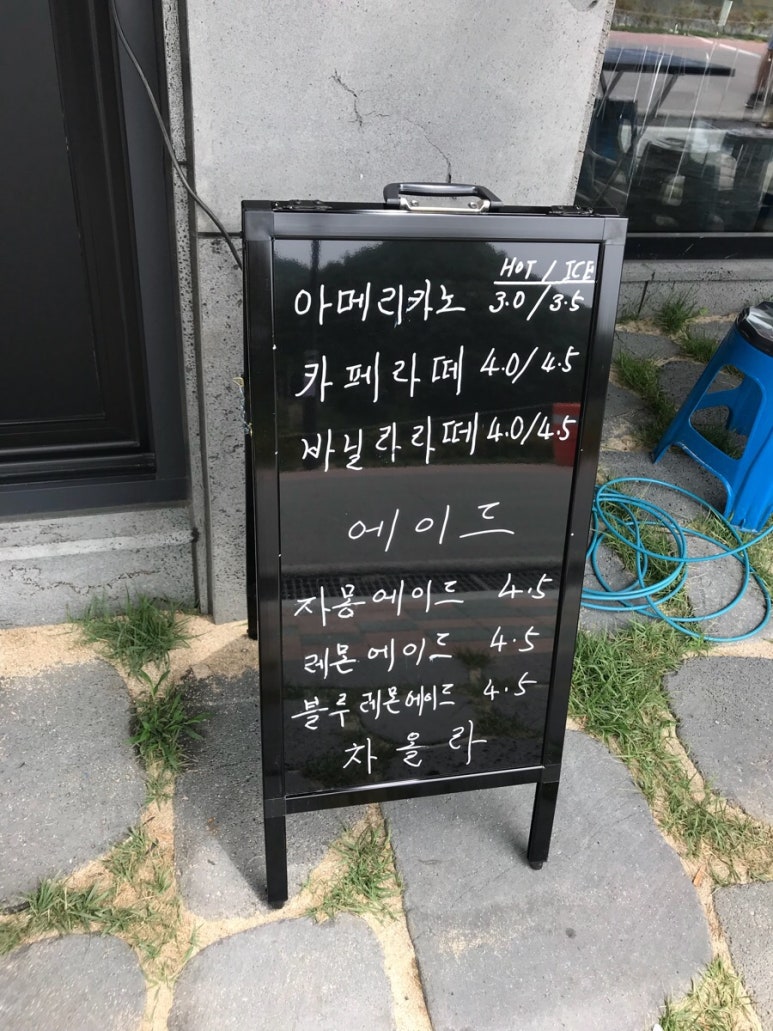 HOT / ICE
아메리카노 3.0/3.5
카페라떼 4.0/4.5
바닐라라떼 4.0/4.5
에이드
자몽에이드 4.5
레몬에이드 4.5
블루레몬에이드 4.5
차올라